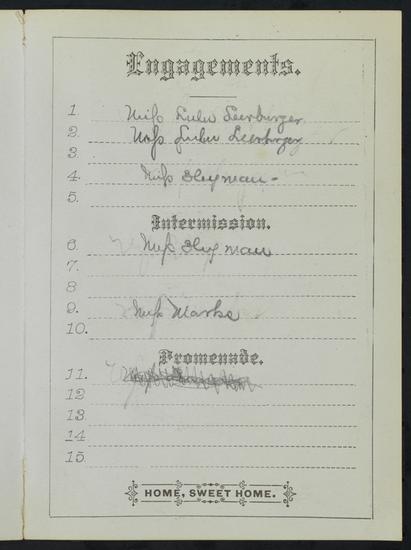 Engagements.
1. Miss Lulu Leerburger
2. Miss Lulu Leerburger
3.
4. Miss Heyman -
5.
Intermission.
6. Miss Heyman
7.
8
9. Miss Marks
10.
Promenade.
11.
12
13.
14
15.
HOME, SWEET HOME.